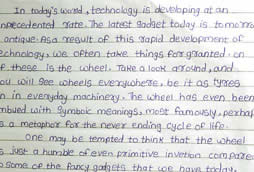 In today's word, technology is developing at an
npecedented rate. The latest Gadget today is tomorro
antique. As a result of this rapid development of
echnology, we often take things for granted. on
f these is the wheel. Take a look around, and
ou will see wheels everywhere, be it as tyres
n in everyday machinery. The wheel has even been
mbued with symbolic meanings, most famously, perhap
s a metaphor for the never ending cycle of life.
One may be tempted to think that the wheel
s just a humble of even primitive invetion compare
o some of the fancy gadgets that we have today.